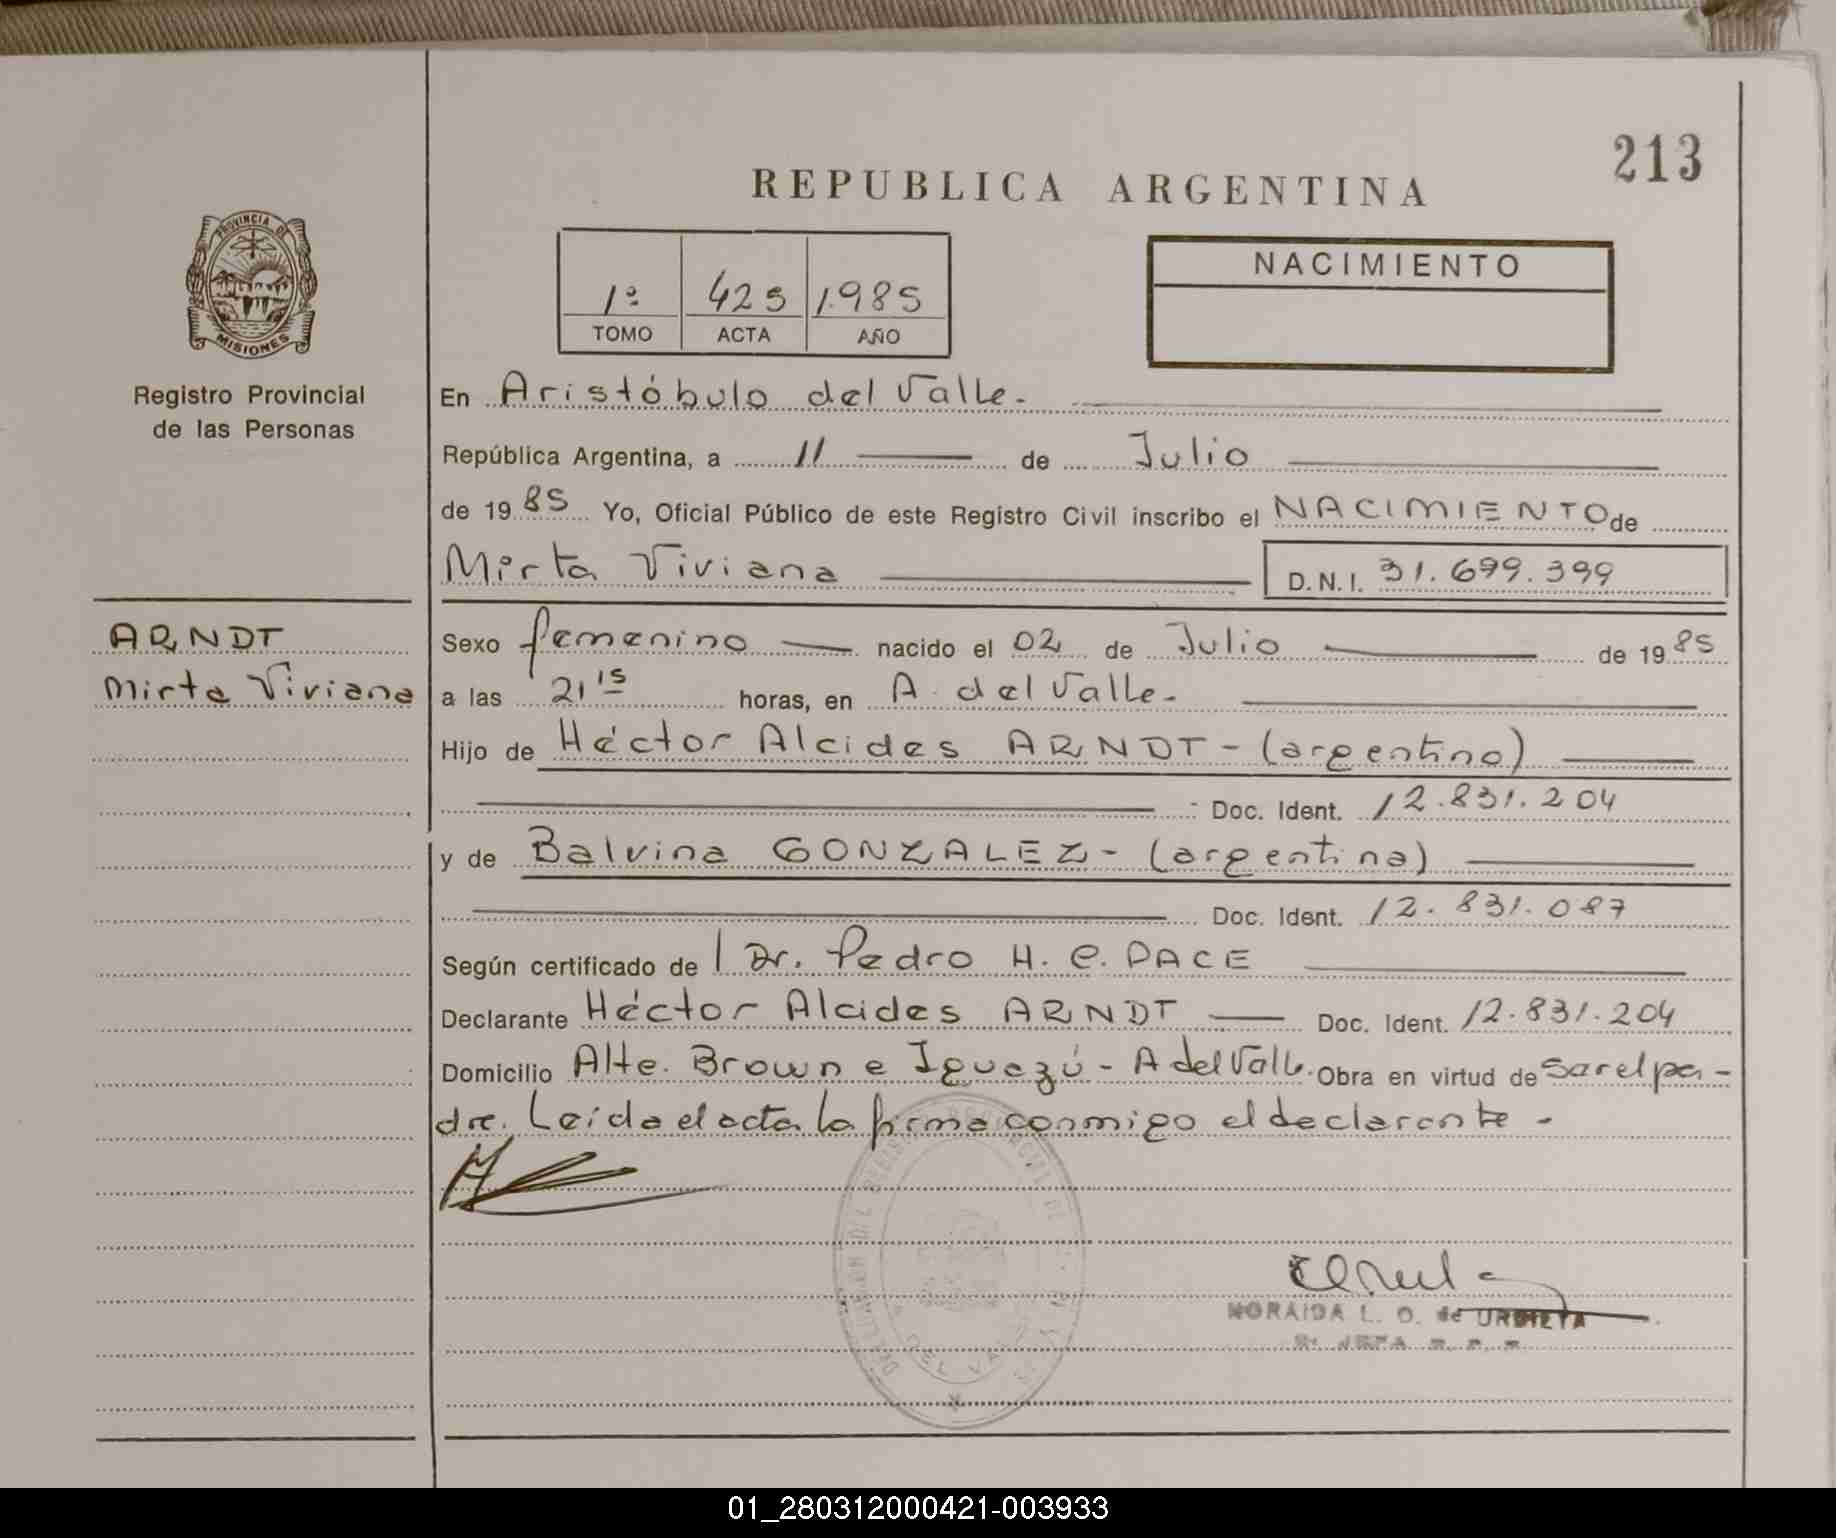 213
REPUBLICA ARGENTINA
PROVINCIA DE
MISIONES
Registro Provincial
de las Personas
1º 425 1.985
TOMO ACTA AÑO
NACIMIENTO
En Aristóbulo del Valle.
República Argentina, a 11 de Julio
de 1985 Yo, Oficial Público de este Registro Civil inscribo el NACIMIENTO de
Mirta Viviana D.N.I. 31.699.399
ARNDT
Mirta Viviana
Sexo femenino nacido el 02 de Julio de 1985
a las 21 15 horas, en A. del Valle.
Hijo de Héctor Alcides ARNDT - (argentino)
Doc. Ident. 12.831.204
y de Balvina GONZALEZ - (argentina)
Doc. Ident. 12.831.087
Según certificado de Dr. Pedro H. C. PACE
Declarante Héctor Alcides ARNDT Doc. Ident. 12.831.204
Domicilio Alte. Brown e Iguazú - A del Valle. Obra en virtud de ser el pa-
dre. Leída el acta la firma conmigo el declarante -
DEL VA
NORAIDA L. O. de URBIETA
01_280312000421-003933